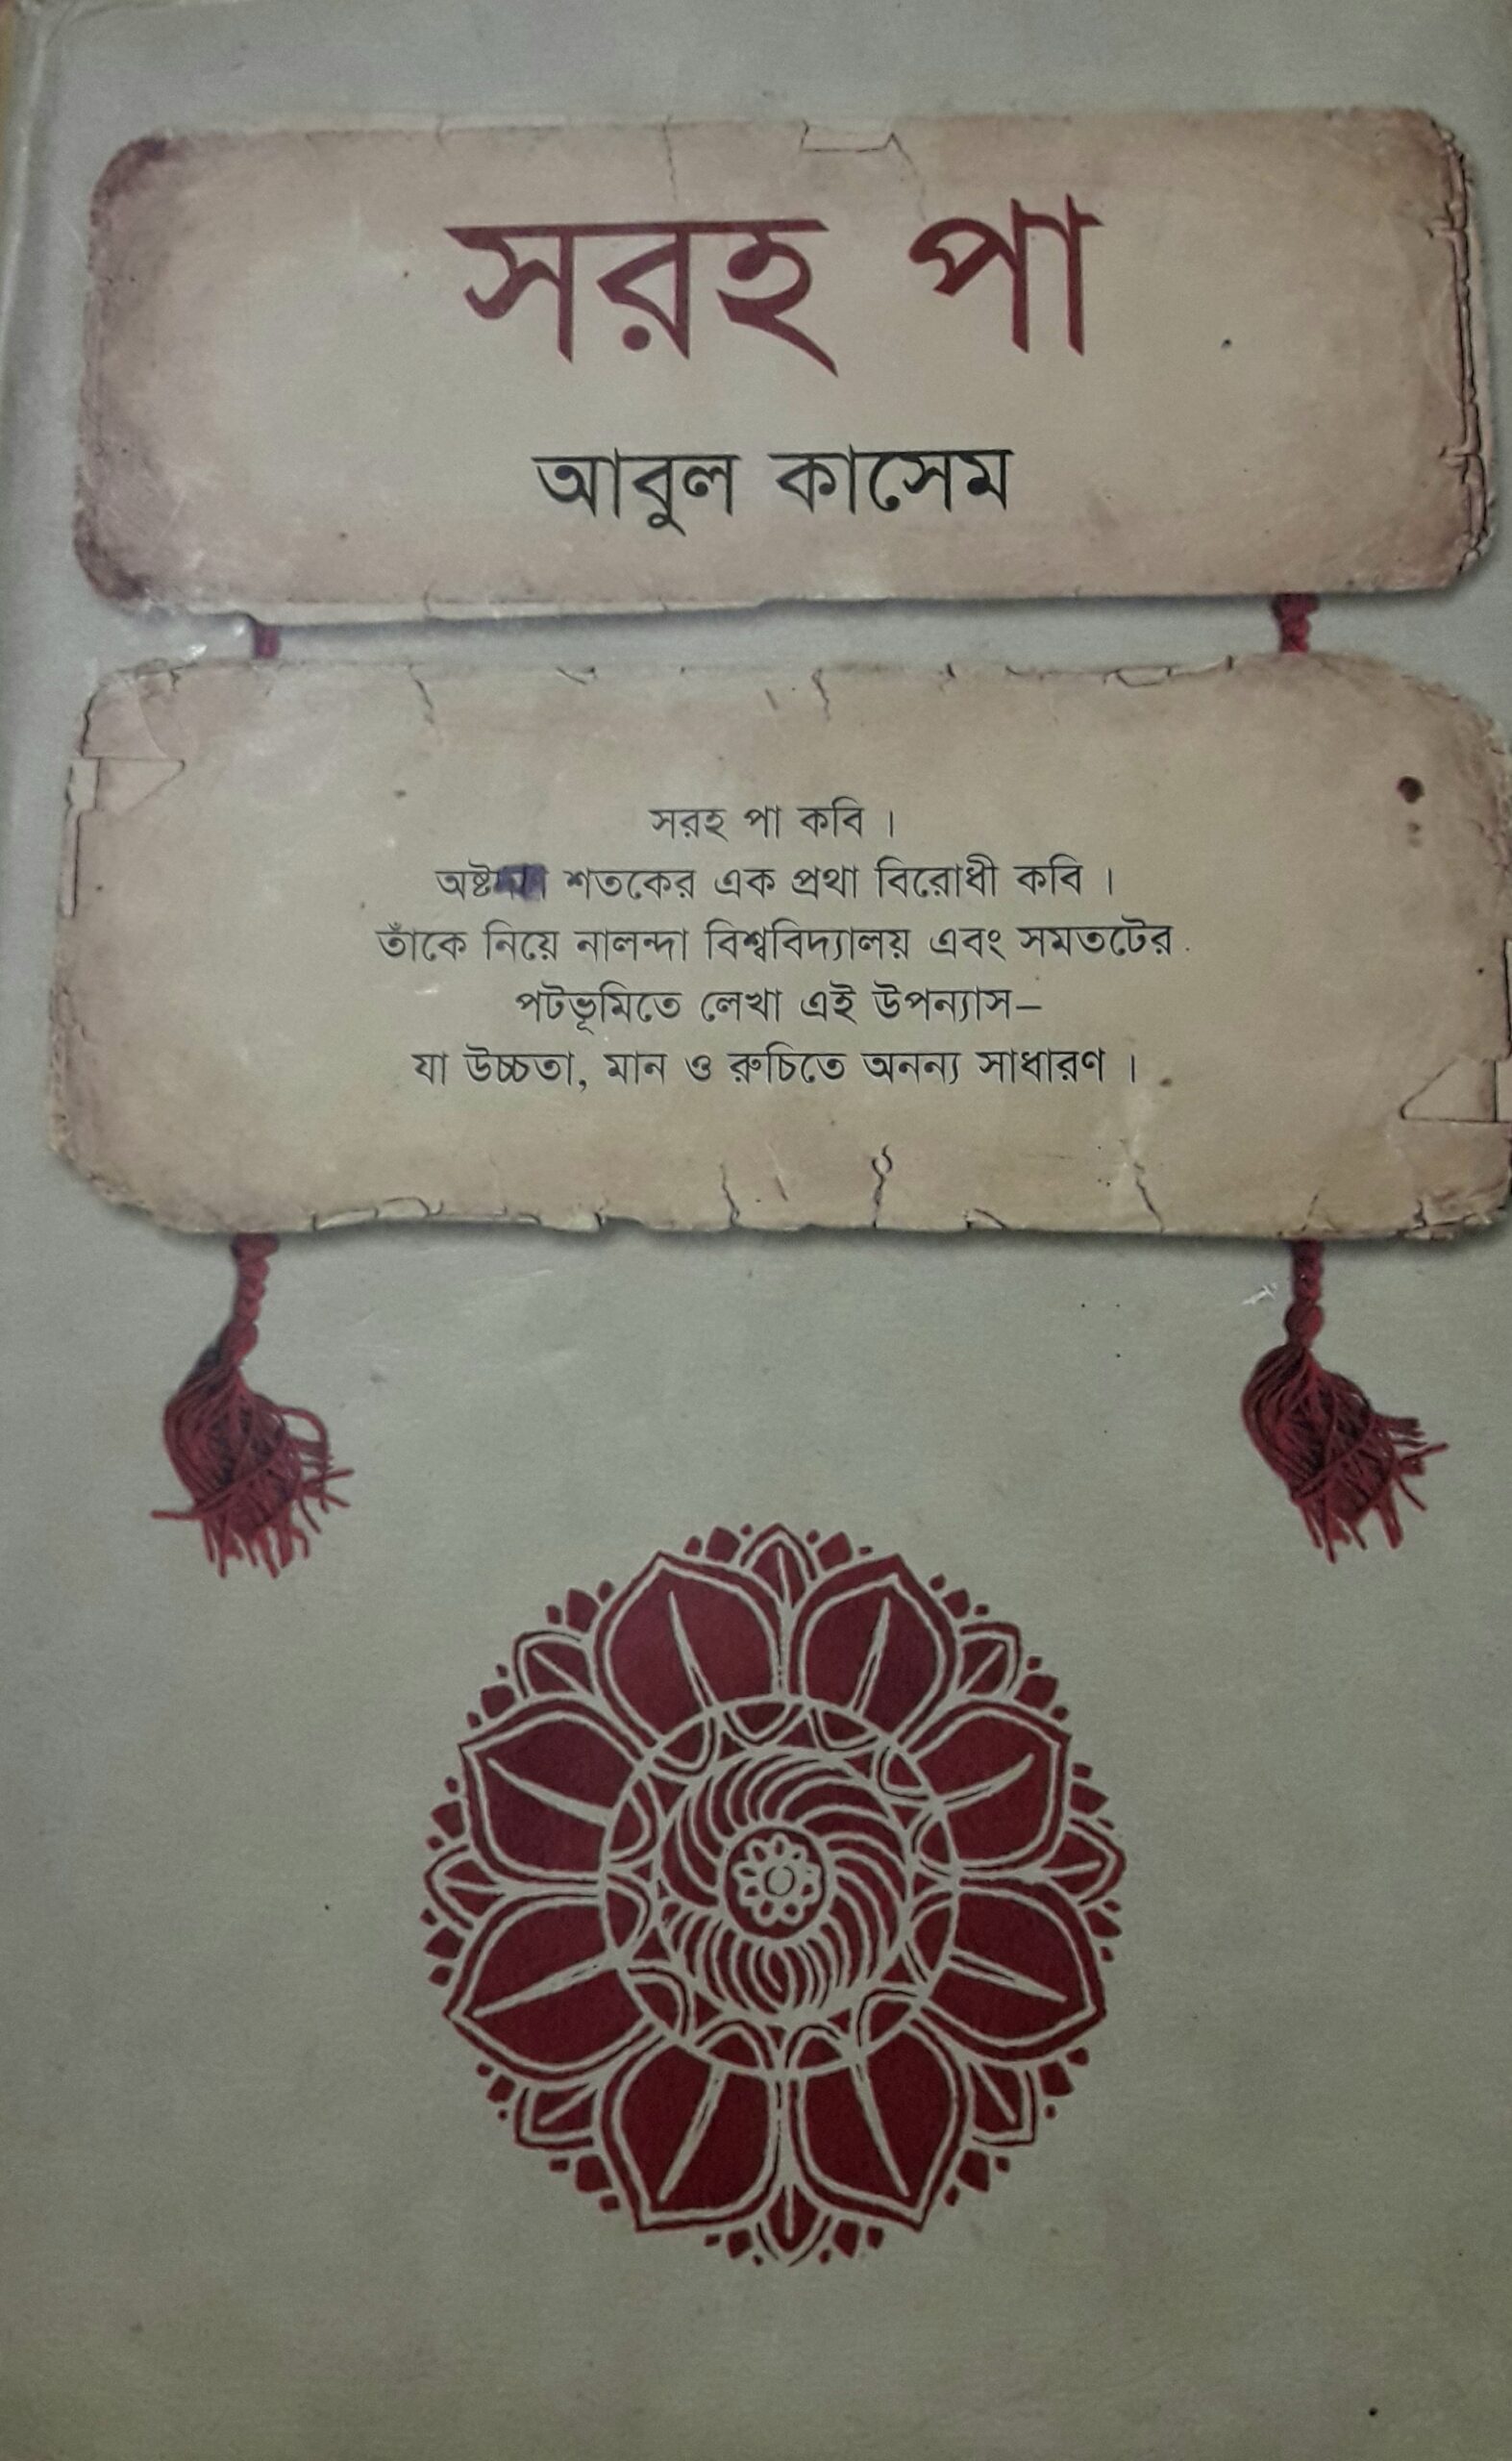 সরহ পা
আবুল কাসেম
সরহ পা কবি ।
অষ্ট শতকের এক প্রথা বিরোধী কবি ।
তাঁকে নিয়ে নালন্দা বিশ্ববিদ্যালয় এবং সমতটের
পটভূমিতে লেখা এই উপন্যাস–
যা উচ্চতা, মান ও রুচিতে অনন্য সাধারণ ।